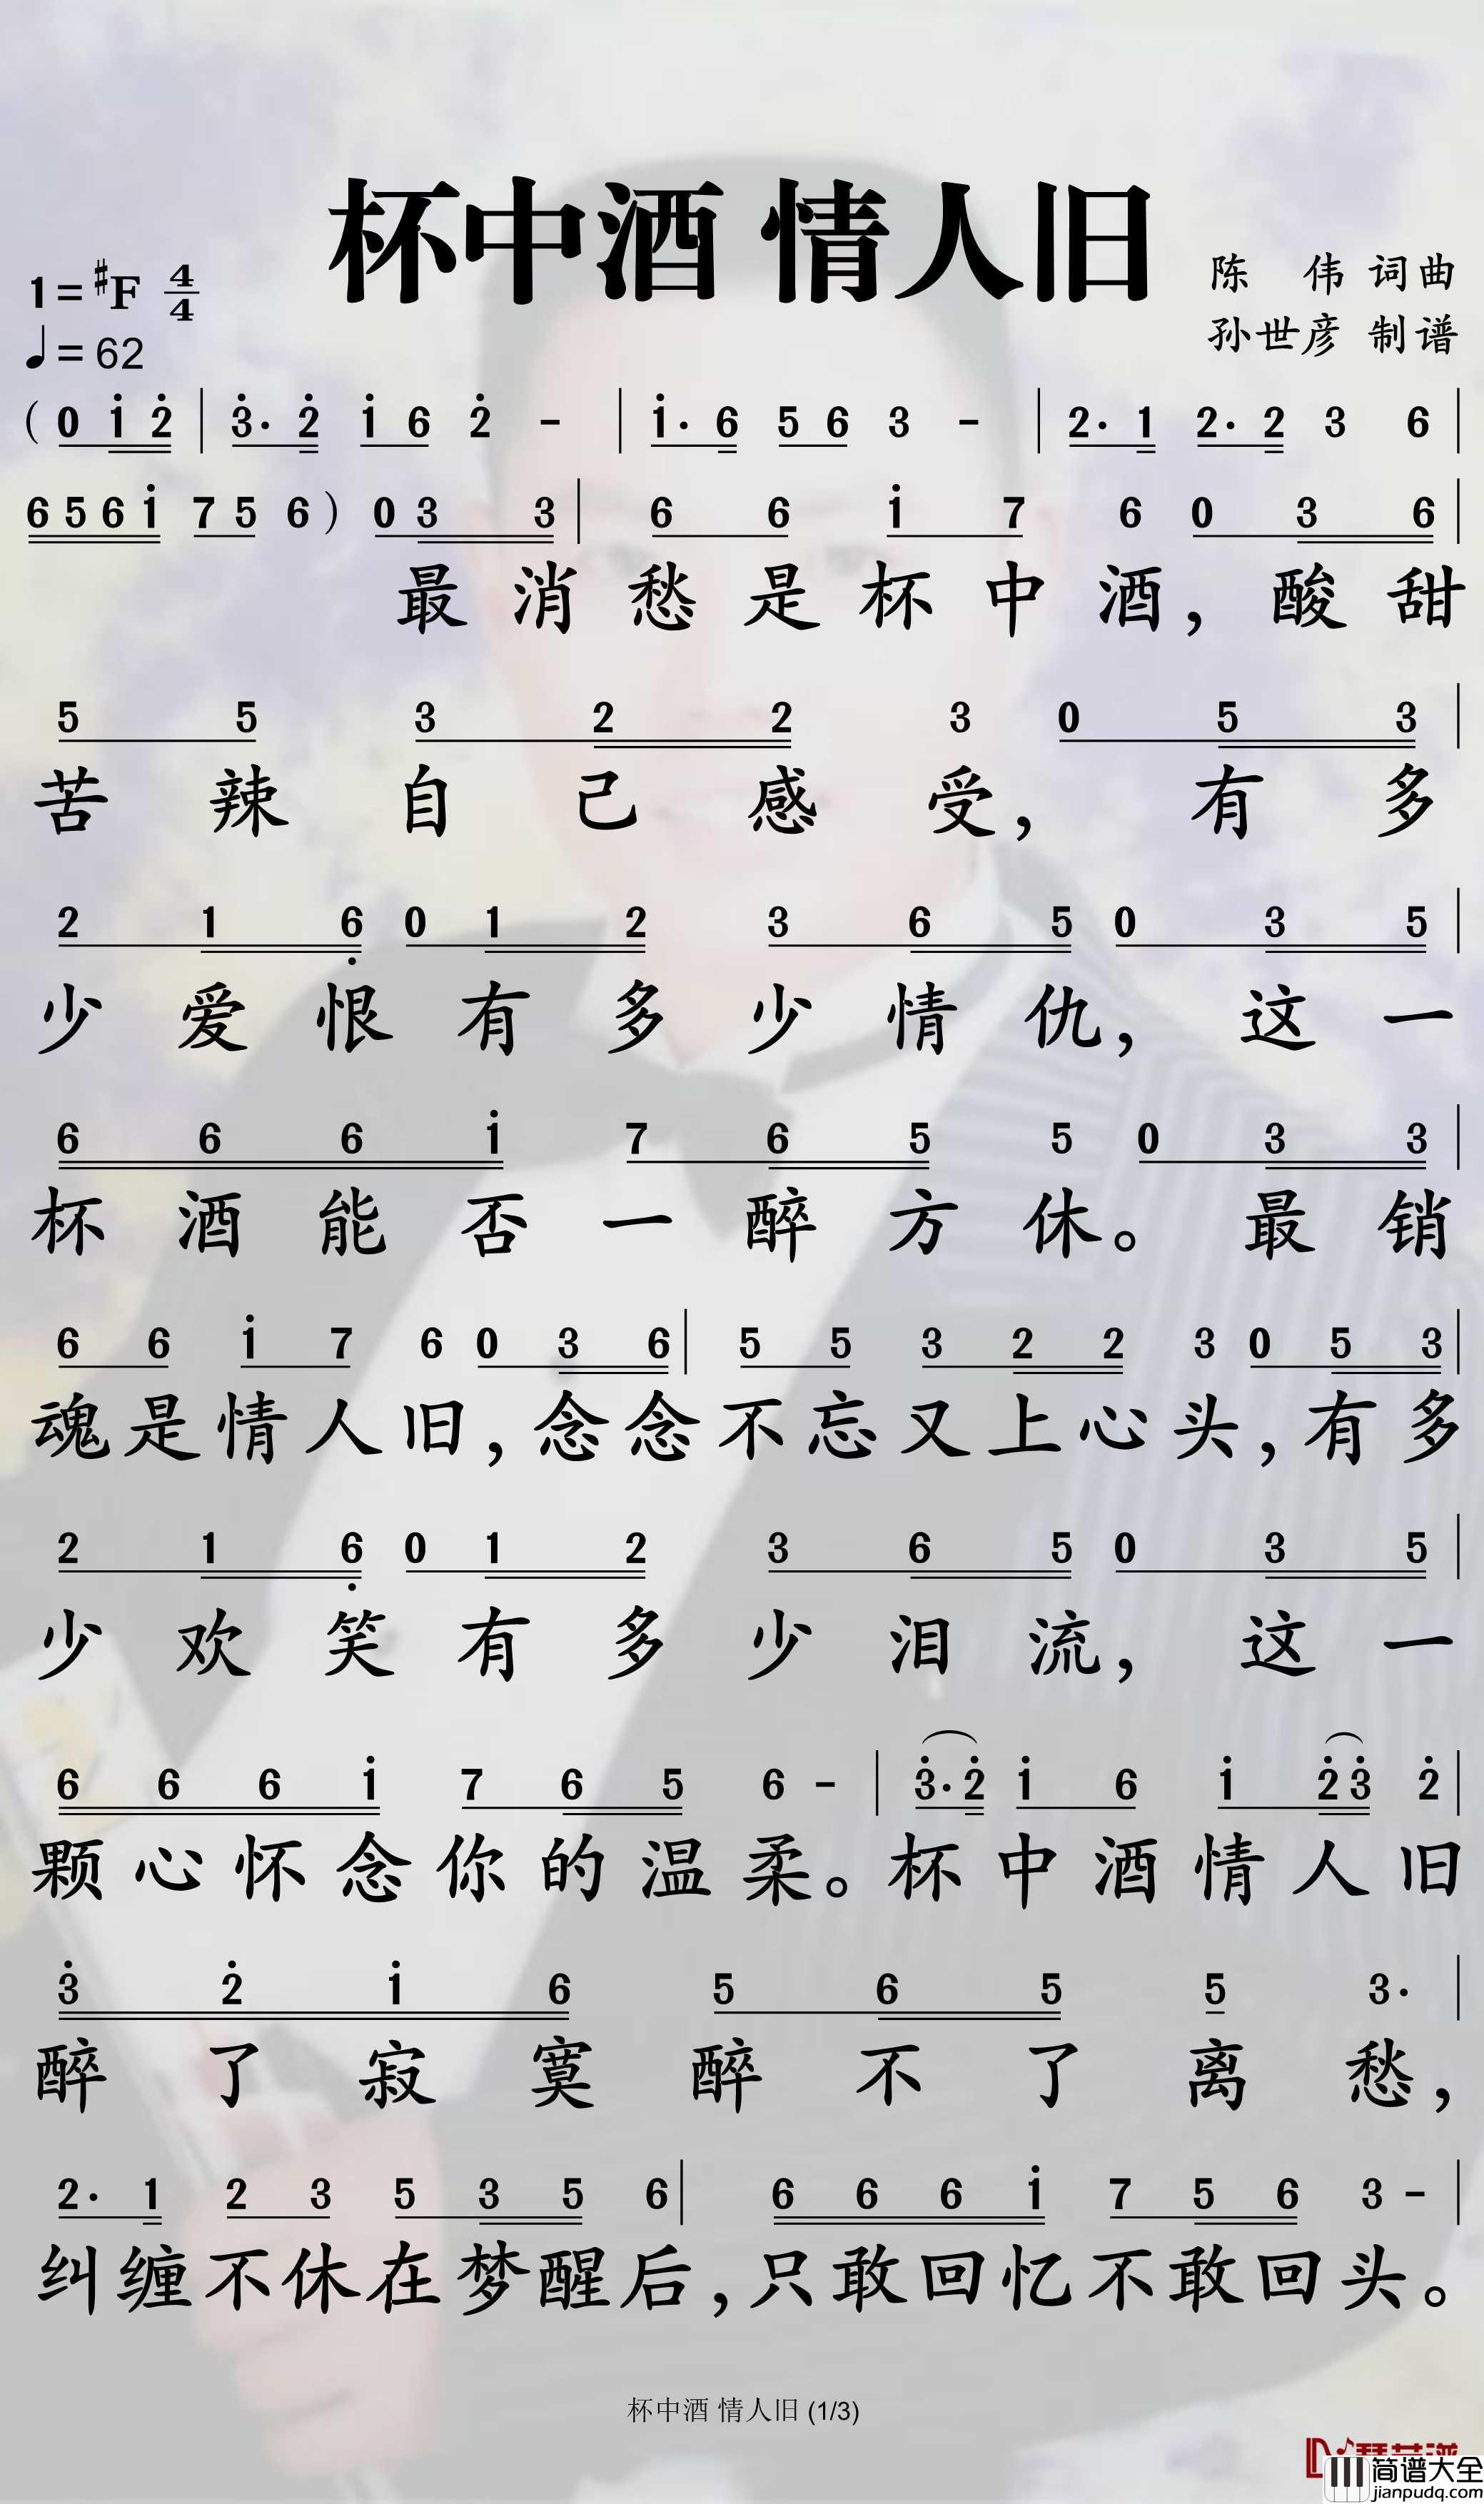 杯中酒 情人旧
1=#F 4/4
陈 伟 词曲
♩=62
孙世彦 制谱
( 0 i 2̇ | 3̇· 2̇ i 6 2̇ - | i· 6 5 6 3 - | 2· 1 2· 2 3 6 |
6 5 6 i 7 5 6 ) 0 3 3 | 6 6 i 7 6 0 3 6 |
最 消 愁 是 杯 中 酒, 酸 甜
5 5 3 2 2 3 0 5 3 |
苦 辣 自 己 感 受, 有 多
2 1 6̣ 0 1 2 3 6 5 0 3 5 |
少 爱 恨 有 多 少 情 仇, 这 一
6 6 6 i 7 6 5 5 0 3 3 |
杯 酒 能 否 一 醉 方 休。 最 销
6 6 i 7 6 0 3 6 | 5 5 3 2 2 3 0 5 3 |
魂 是 情 人 旧, 念 念 不 忘 又 上 心 头, 有 多
2 1 6̣ 0 1 2 3 6 5 0 3 5 |
少 欢 笑 有 多 少 泪 流, 这 一
6 6 6 i 7 6 5 6 - | 3̇· 2̇ i 6 i 2̇ 3̇ 2̇ |
颗 心 怀 念 你 的 温 柔。 杯 中 酒 情 人 旧
3̇ 2̇ i 6 5 6 5 5 3· |
醉 了 寂 寞 醉 不 了 离 愁,
2· 1 2 3 5 3 5 6 | 6 6 6 i 7 5 6 3 - |
纠 缠 不 休 在 梦 醒 后, 只 敢 回 忆 不 敢 回 头。
杯中酒 情人旧 (1/3)
简谱大全
jianpudq.com